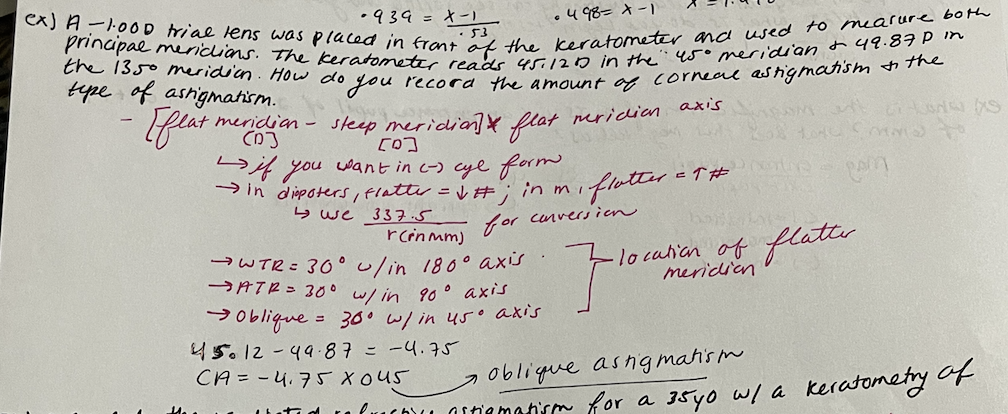 ·939 = x-1
.53
·498= x-1
ex) A -1.00D trial lens was placed in front of the keratometer and used to measure both
principal meridians. The keratometer reads 45.12D in the 45° meridian & 49.87D in
the 135° meridian. How do you record the amount of corneal astigmatism & the
type of astigmatism.
- [flat meridian - steep meridian] x flat meridian axis
[D] [D]
↳ if you want in (-) cyl form
→ in diopters, flatter = ↓ #; in m, flatter = ↑ #
↳ use 337.5 for conversion
r(in mm)
→ WTR = 30° w/in 180° axis
→ ATR = 30° w/in 90° axis
→ oblique = 30° w/in 45° axis
location of flatter
meridian
45.12 - 49.87 = -4.75
CA = -4.75 x 045 → oblique astigmatism
refractive astigmatism for a 35yo w/ a keratometry of